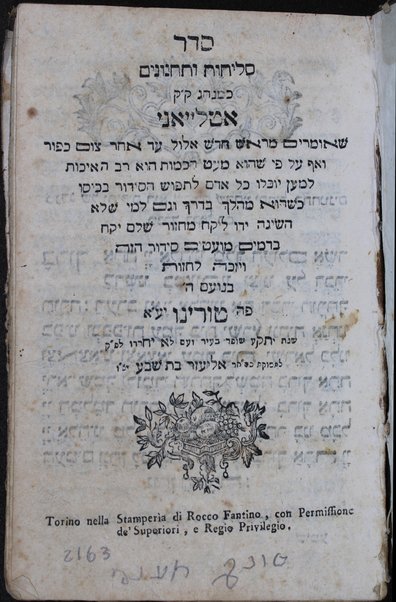 סדר
סליחות ותחנונים
כמנהג ק״ק
אטלייאני
שאומרים מראש חדש אלול עד אחר צום כפור
ואף על פי שהוא מעט הכמות הוא רב האיכות
למען יוכלו כל אדם לתפוש הסידור בכיסו
כשהוא מהלך בדרך וגם למי שלא
השיגה ידו ליקח מחזור שלם יקח
בדמים מועטים סידור הזה
ויזכה לחזות
בנועם ה׳
פה טורינו יע״א
שנת יתקע שופר בעיר ועם לא יחרדו לפ״ק
אליעזר בת שבע
Torino nella Stamperia di Rocco Fantino, con Permissione
de' Superiori, e Regio Privilegio.
2163